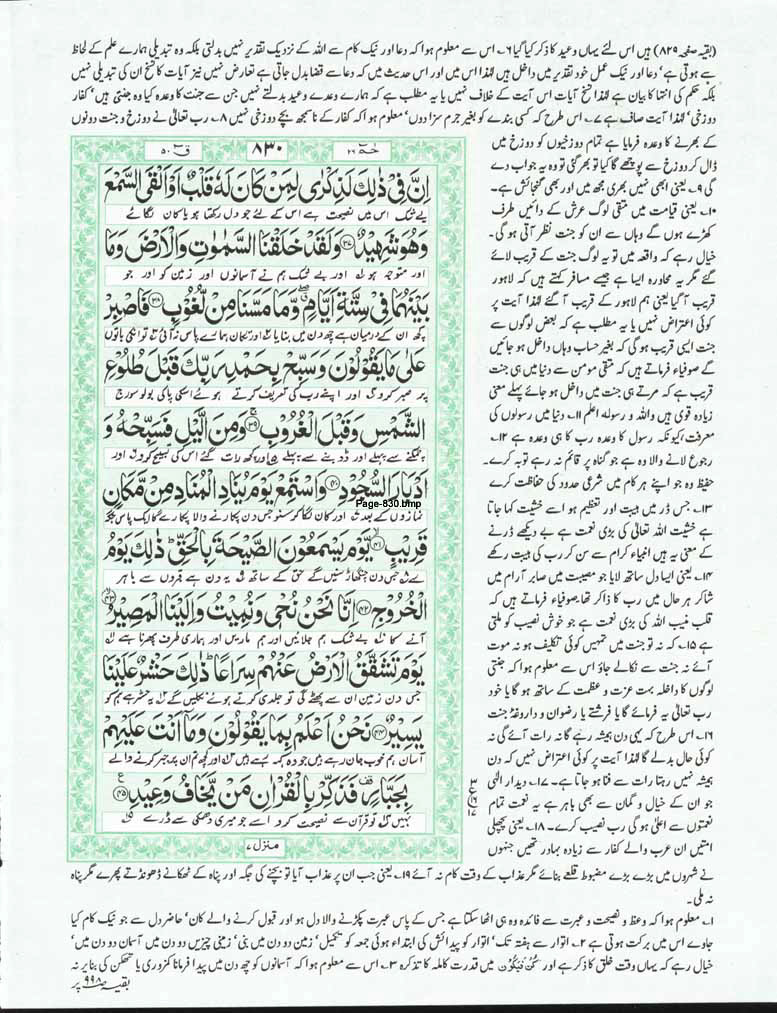 (بقیہ صفحہ ۸۲۹) ہیں اس لئے یہاں وعید کا ذکر کیا گیا ۶۔ اس سے معلوم ہوا کہ دعا اور نیک کام سے اللہ کے نزدیک تقدیر نہیں بدلتی بلکہ وہ تبدیلی ہمارے علم کے لحاظ
سے ہوتی ہے' دعا اور نیک عمل خود تقدیر میں داخل ہیں لہٰذا اس میں اور اس حدیث میں کہ دعا سے قضا بدل جاتی ہے تعارض نہیں نیز آیات کا نسخ ان کی تبدیلی نہیں
بلکہ حکم کی انتہا کا بیان ہے لہٰذا نسخ آیات اس آیت کے خلاف نہیں یا یہ مطلب ہے کہ ہمارے وعدے وعید بدلتے نہیں جن سے جنت کا وعدہ کیا وہ جنتی ہیں' کفار
دوزخی' لہٰذا آیت صاف ہے ۷۔ اس طرح کہ کسی بندے کو بغیر جرم سزا دوں' معلوم ہوا کہ کفار کے ناسمجھ بچے دوزخی نہیں ۸۔ رب تعالیٰ نے دوزخ و جنت دونوں
کے بھرنے کا وعدہ فرمایا ہے تمام دوزخیوں کو دوزخ میں
ڈال کر دوزخ سے پوچھے گا کیا تو بھر گئی تو وہ یہ جواب دے
گی ۹۔ یعنی ابھی نہیں بھری مجھ میں اور بھی گنجائش ہے۔
۱۰۔ یعنی قیامت میں متقی لوگ عرش کے دائیں طرف
کھڑے ہوں گے وہاں سے ان کو جنت نظر آتی ہو گی۔
خیال رہے کہ واقعہ میں تو یہ لوگ جنت کے قریب لائے
گئے مگر یہ محاورہ ایسا ہے جیسے مسافر کہتے ہیں کہ لاہور
قریب آ گیا یعنی ہم لاہور کے قریب آ گئے لہٰذا آیت پر
کوئی اعتراض نہیں یا یہ مطلب ہے کہ بعض لوگوں سے
جنت ایسی قریب ہو گی کہ بغیر حساب وہاں داخل ہو جائیں
گے صوفیاء فرماتے ہیں کہ متقی مومن سے دنیا میں ہی جنت
قریب ہے کہ مرتے ہی جنت میں داخل ہو جائے پہلے معنی
زیادہ قوی ہیں واللہ و رسولہ اعلم ۱۱۔ دنیا میں رسولوں کی
معرفت' کیونکہ رسول کا وعدہ رب کا ہی وعدہ ہے ۱۲۔
رجوع لانے والا وہ ہے جو گناہ پر قائم نہ رہے توبہ کرے۔
حفیظ وہ جو اپنے ہر کام میں شرعی حدود کی حفاظت کرے
۱۳۔ جس ڈر میں ہیبت اور تعظیم ہو اسے خشیت کہا جاتا
ہے خشیت اللہ تعالیٰ کی بڑی نعمت ہے بے دیکھے ڈرنے
کے معنی یہ ہیں انبیاء کرام سے سن کر رب کی ہیبت رکھے
۱۴۔ یعنی ایسا دل ساتھ لایا جو مصیبت میں صابر آرام میں
شاکر ہر حال میں رب کا ذاکر تھا۔ صوفیاء فرماتے ہیں کہ
قلب منیب اللہ کی بڑی نعمت ہے جو خوش نصیب کو ملتی
ہے ۱۵۔ کہ نہ تو جنت میں تمہیں کوئی تکلیف ہو نہ موت
آئے نہ جنت سے نکالے جاؤ اس سے معلوم ہوا کہ جنتی
لوگوں کا داخلہ بہت عزت و عظمت کے ساتھ ہو گا یا خود
رب تعالیٰ یہ فرمائے گا یا فرشتے یا رضوان و داروغۂ جنت
۱۶۔ اس طرح کہ یہی دن ہمیشہ رہے گا نہ رات آئے گی نہ
کوئی حال بدلے گا لہٰذا آیت پر کوئی اعتراض نہیں کہ دن
ہمیشہ نہیں رہتا رات سے فنا ہو جاتا ہے۔ ۱۷۔ دیدار الٰہی
جو ان کے خیال و گمان سے بھی باہر ہے یہ نعمت تمام
نعمتوں سے اعلیٰ ہو گی رب نصیب کرے۔ ۱۸۔ یعنی پچھلی
امتیں ان عرب والے کفار سے زیادہ بہادر تھیں جنہوں
حٰمٓ ۲۶
۸۳۰
قٓ ۵۰
اِنَّ فِیْ ذٰلِكَ لَذِكْرٰی لِمَنْ كَانَ لَهٗ قَلْبٌ اَوْ اَلْقَی السَّمْعَ
بے شک اس میں نصیحت ہے اس کے لئے جو دل رکھتا ہو یا کان لگائے
وَهُوَ شَهِیْدٌ ﴿۳۷﴾ وَلَقَدْ خَلَقْنَا السَّمٰوٰتِ وَالْاَرْضَ وَمَا
اور متوجہ ہو اور بے شک ہم نے آسمانوں اور زمین کو اور جو
بَیْنَهُمَا فِیْ سِتَّةِ اَیَّامٍ وَّمَا مَسَّنَا مِنْ لُّغُوْبٍ ﴿۳۸﴾ فَاصْبِرْ
کچھ ان کے درمیان ہے چھ دن میں بنایا اور تکان ہمارے پاس نہ آئی تو انکی باتوں
عَلٰی مَا یَقُوْلُوْنَ وَسَبِّحْ بِحَمْدِ رَبِّكَ قَبْلَ طُلُوْعِ
پر صبر کرو اور اپنے رب کی تعریف کرتے ہوئے اسکی پاکی بولو سورج
الشَّمْسِ وَقَبْلَ الْغُرُوْبِ ﴿۳۹﴾ وَمِنَ الَّیْلِ فَسَبِّحْهُ وَ
چمکنے سے پہلے اور ڈوبنے سے پہلے اور کچھ رات گئے اس کی تسبیح کرو اور
اَدْبَارَ السُّجُوْدِ ﴿۴۰﴾ وَاسْتَمِعْ یَوْمَ یُنَادِ الْمُنَادِ مِنْ مَّكَانٍ
Page-830.bmp
نمازوں کے بعد اور کان لگا کر سنو جس دن پکارنے والا پکارے گا ایک پاس جگہ
قَرِیْبٍ ﴿۴۱﴾ یَّوْمَ یَسْمَعُوْنَ الصَّیْحَةَ بِالْحَقِّ ذٰلِكَ یَوْمُ
سے جس دن چنگھاڑ سنیں گے حق کے ساتھ یہ دن ہے قبروں سے باہر
الْخُرُوْجِ ﴿۴۲﴾ اِنَّا نَحْنُ نُحْیٖ وَنُمِیْتُ وَاِلَیْنَا الْمَصِیْرُ ﴿۴۳﴾
آنے کا بے شک ہم جلائیں اور ہم ماریں اور ہماری طرف پھرنا ہے
یَوْمَ تَشَقَّقُ الْاَرْضُ عَنْهُمْ سِرَاعًا ذٰلِكَ حَشْرٌ عَلَیْنَا
جس دن زمین ان سے پھٹے گی تو جلدی کرتے ہوئے نکلیں گے یہ حشر ہے ہم کو
یَسِیْرٌ ﴿۴۴﴾ نَحْنُ اَعْلَمُ بِمَا یَقُوْلُوْنَ وَمَاۤ اَنْتَ عَلَیْهِمْ
آسان ہم خوب جان رہے ہیں جو وہ کہہ رہے ہیں اور کچھ تم ان پر جبر کرنے والے
بِجَبَّارٍ فَذَكِّرْ بِالْقُرْاٰنِ مَنْ یَّخَافُ وَعِیْدِ ﴿۴۵﴾
نہیں تو قرآن سے نصیحت کرو اسے جو میری دھمکی سے ڈرے
منزل ۷
نے شہروں میں بڑے بڑے مضبوط قلعے بنائے مگر عذاب کے وقت کام نہ آئے ۱۹۔ یعنی جب ان پر عذاب آیا تو بچنے کی جگہ اور پناہ کے ٹھکانے ڈھونڈتے پھرے مگر پناہ
نہ ملی۔
۱۔ معلوم ہوا کہ وعظ و نصیحت و عبرت سے فائدہ وہ ہی اٹھا سکتا ہے جس کے پاس عبرت پکڑنے والا دل ہو اور قبول کرنے والے کان' حاضر دل سے جو نیک کام کیا
جاوے اس میں برکت ہوتی ہے ۲۔ اتوار سے ہفتہ تک' اتوار کو پیدائش کی ابتداء ہوئی جمعہ کو تکمیل' زمین دو دن میں بنی' زمینی چیزیں دو دن میں آسمان دو دن میں'
خیال رہے کہ یہاں وقت خلق کا ذکر ہے اور کُنْ فَیَکُوْن میں قدرت کاملہ کا تذکرہ ۳۔ اس سے معلوم ہوا کہ آسمانوں کو چھ دن میں پیدا فرمانا کمزوری یا تھکن کی بنا پر نہ
بقیہ صفحہ ۹۹۸ پر